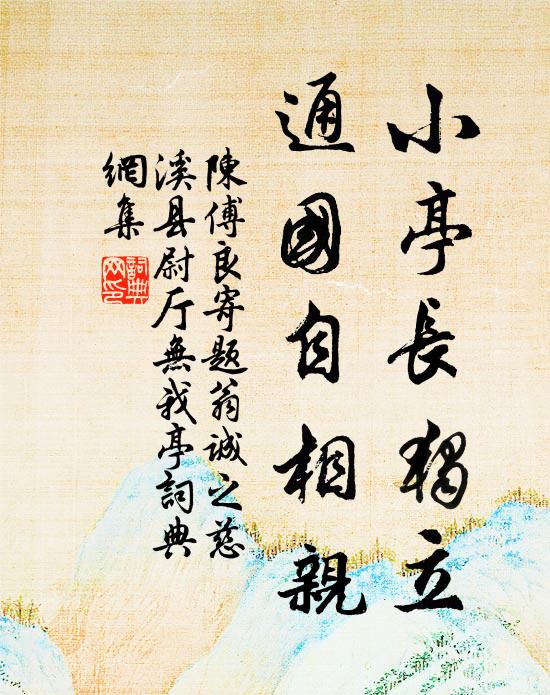 小亭長獨立
通國自相親
陳傅良寄題翁誠之慈
溪县尉厅無我亭詞典
網集
詞典
网印